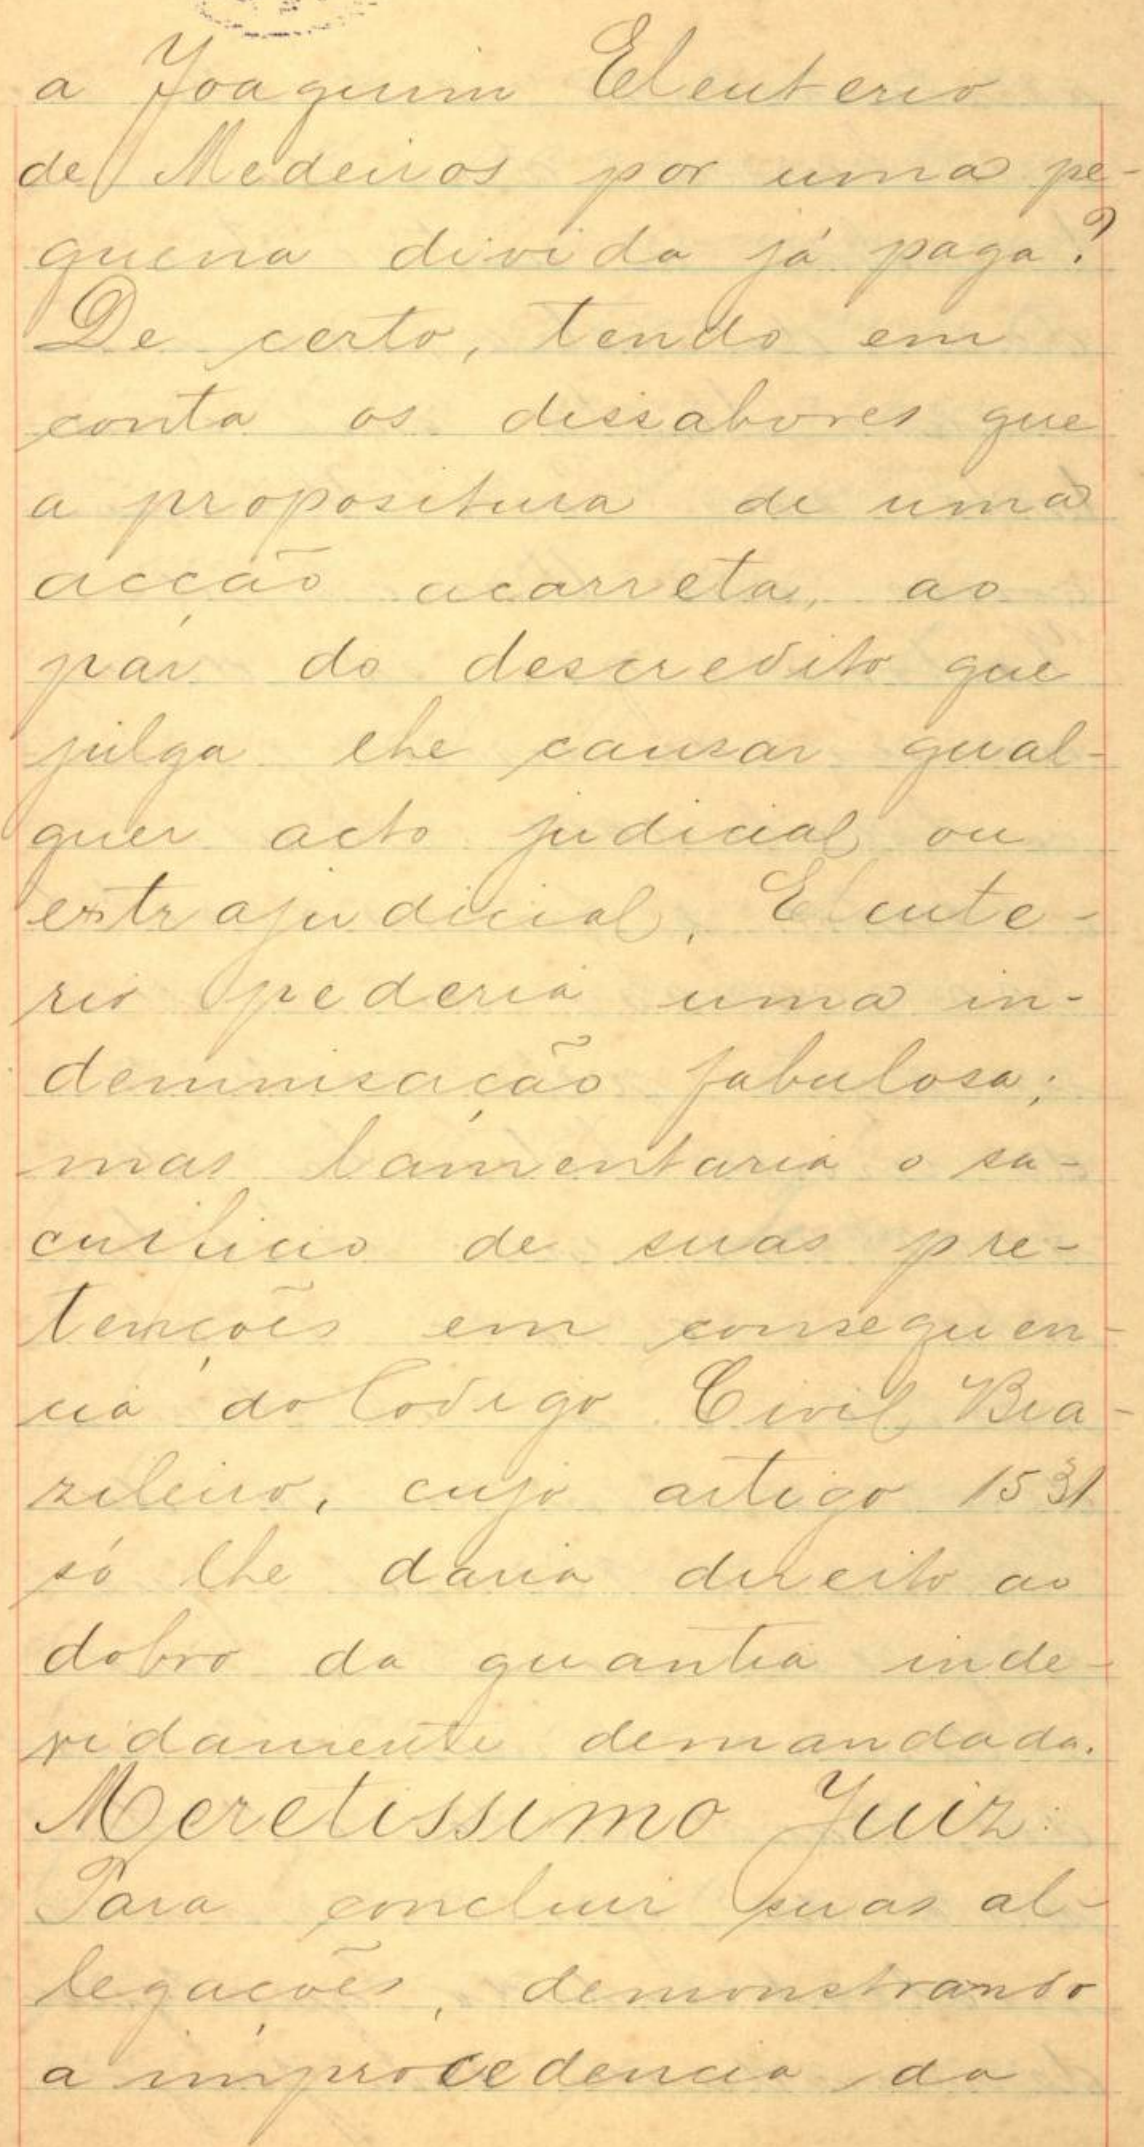 a Joaquim Eleuterio
de Medeiros por uma pe-
quena divida já paga?
De certo, tendo em
conta os dissabores que
a propositura de uma
acção acarreta, ao
par do descredito que
julga lhe causar qual-
quer acto judicial ou
extrajudicial, Eleute-
rio pederia uma in-
demnisação fabulosa;
mas lamentaria o sa-
crificio de suas pre-
tenções em consequen-
cia do Codigo Civil Bra-
zileiro, cujo artigo 1531
só lhe daria direito ao
dobro da quantia inde-
vidamente demandada.
Meretissimo Juiz:
Para concluir suas al-
legações, demonstrando
a improcedencia da